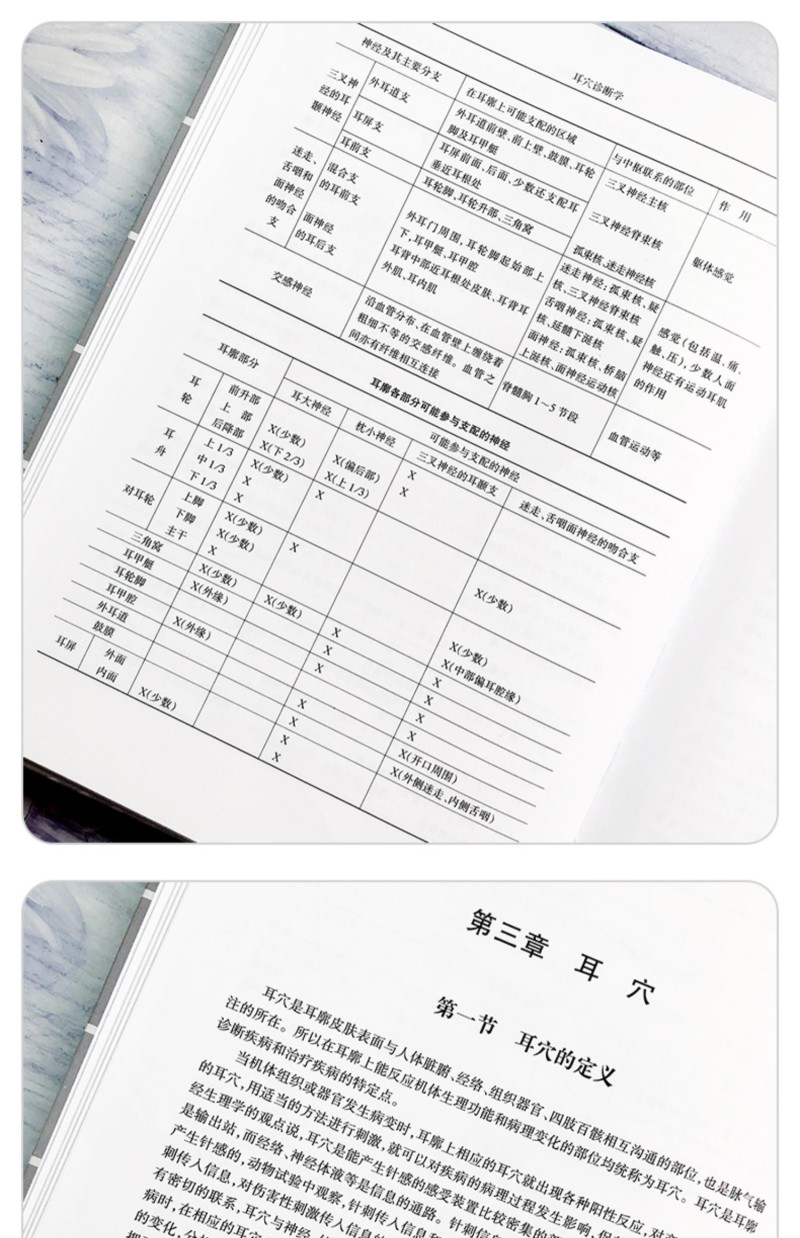 耳穴诊断学
神经及其主要分支 在耳廓上可能支配的区域 与中枢联系的部位 作 用
三叉神经的耳颞神经 外耳道支 外耳道前壁、前上壁、鼓膜、耳轮脚及耳甲艇 三叉神经主核
耳屏支 耳屏前面、后面,少数还支配耳垂近耳根处 三叉神经脊束核
耳前支 耳轮脚、耳轮升部、三角窝
躯体感觉
迷走、舌咽和面神经的吻合支 混合支的耳前支 外耳门周围,耳轮脚起始部上下,耳甲艇、耳甲腔
面神经的耳后支 耳背中部近耳根处皮肤、耳背耳外肌、耳内肌
孤束核、迷走神经核
迷走神经:孤束核、疑核、三叉神经脊束核
舌咽神经:孤束核、疑核、延髓下涎核
面神经:孤束核、桥脑上涎核、面神经运动核
感觉(包括温、痛、触、压),少数人面神经还有运动耳肌的作用
交感神经 沿血管分布、在血管壁上缠绕着粗细不等的交感纤维。血管之间亦有纤维相互连接 脊髓胸1~5节段 血管运动等
耳廓各部分可能参与支配的神经
耳廓部分 可能参与支配的神经
耳大神经 枕小神经 三叉神经的耳颞支 迷走、舌咽面神经的吻合支
耳轮 前升部 X
上 部 X(少数) X(偏后部) X
后降部 X(下2/3) X(上1/3)
耳舟 上1/3 X(少数) X
中1/3 X
下1/3 X
对耳轮 上脚 X(少数) X
下脚 X(少数)
主干 X X(少数)
三角窝 X(少数) X(少数) X X(少数)
耳甲艇 X(外缘) X X(中部偏耳腔缘)
耳轮脚 X X
耳甲腔 X(外缘) X
外耳道 X X
鼓膜 X X
耳屏 外面 X X(开口周围)
内面 X(少数) X X(外侧迷走、内侧舌咽)
第三章 耳 穴
第一节 耳穴的定义
耳穴是耳廓皮肤表面与人体脏腑、经络、组织器官、四肢百骸相互沟通的部位,也是脉气输
注的所在。所以在耳廓上能反应机体生理功能和病理变化的部位均统称为耳穴。耳穴是耳廓
诊断疾病和治疗疾病的特定点。
当机体组织或器官发生病变时,耳廓上相应的耳穴就出现各种阳性反应,对
的耳穴,用适当的方法进行刺激,就可以对疾病的病理过程发生影响,
经生理学的观点说,耳穴是能产生针感的感受装置比较密集的
是输出站,而经络、神经体液等是信息的通路。针刺信
产生针感的,动物试验中观察,针刺传入信息
刺传入信息,对伤害性刺激传入信息
有密切的联系,耳穴与神经
病时,在相应的耳穴
的变化,